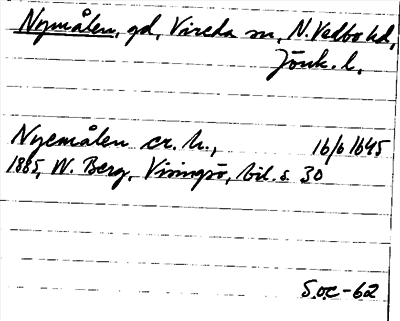 Nymålen, gd, Vireda sn, N. Vedbo hd,
Jönk. l,
Nyemålen cr. h., 16/6 1645
1885, W. Berg, Visingsö, bil. s. 30
S.o.c-62